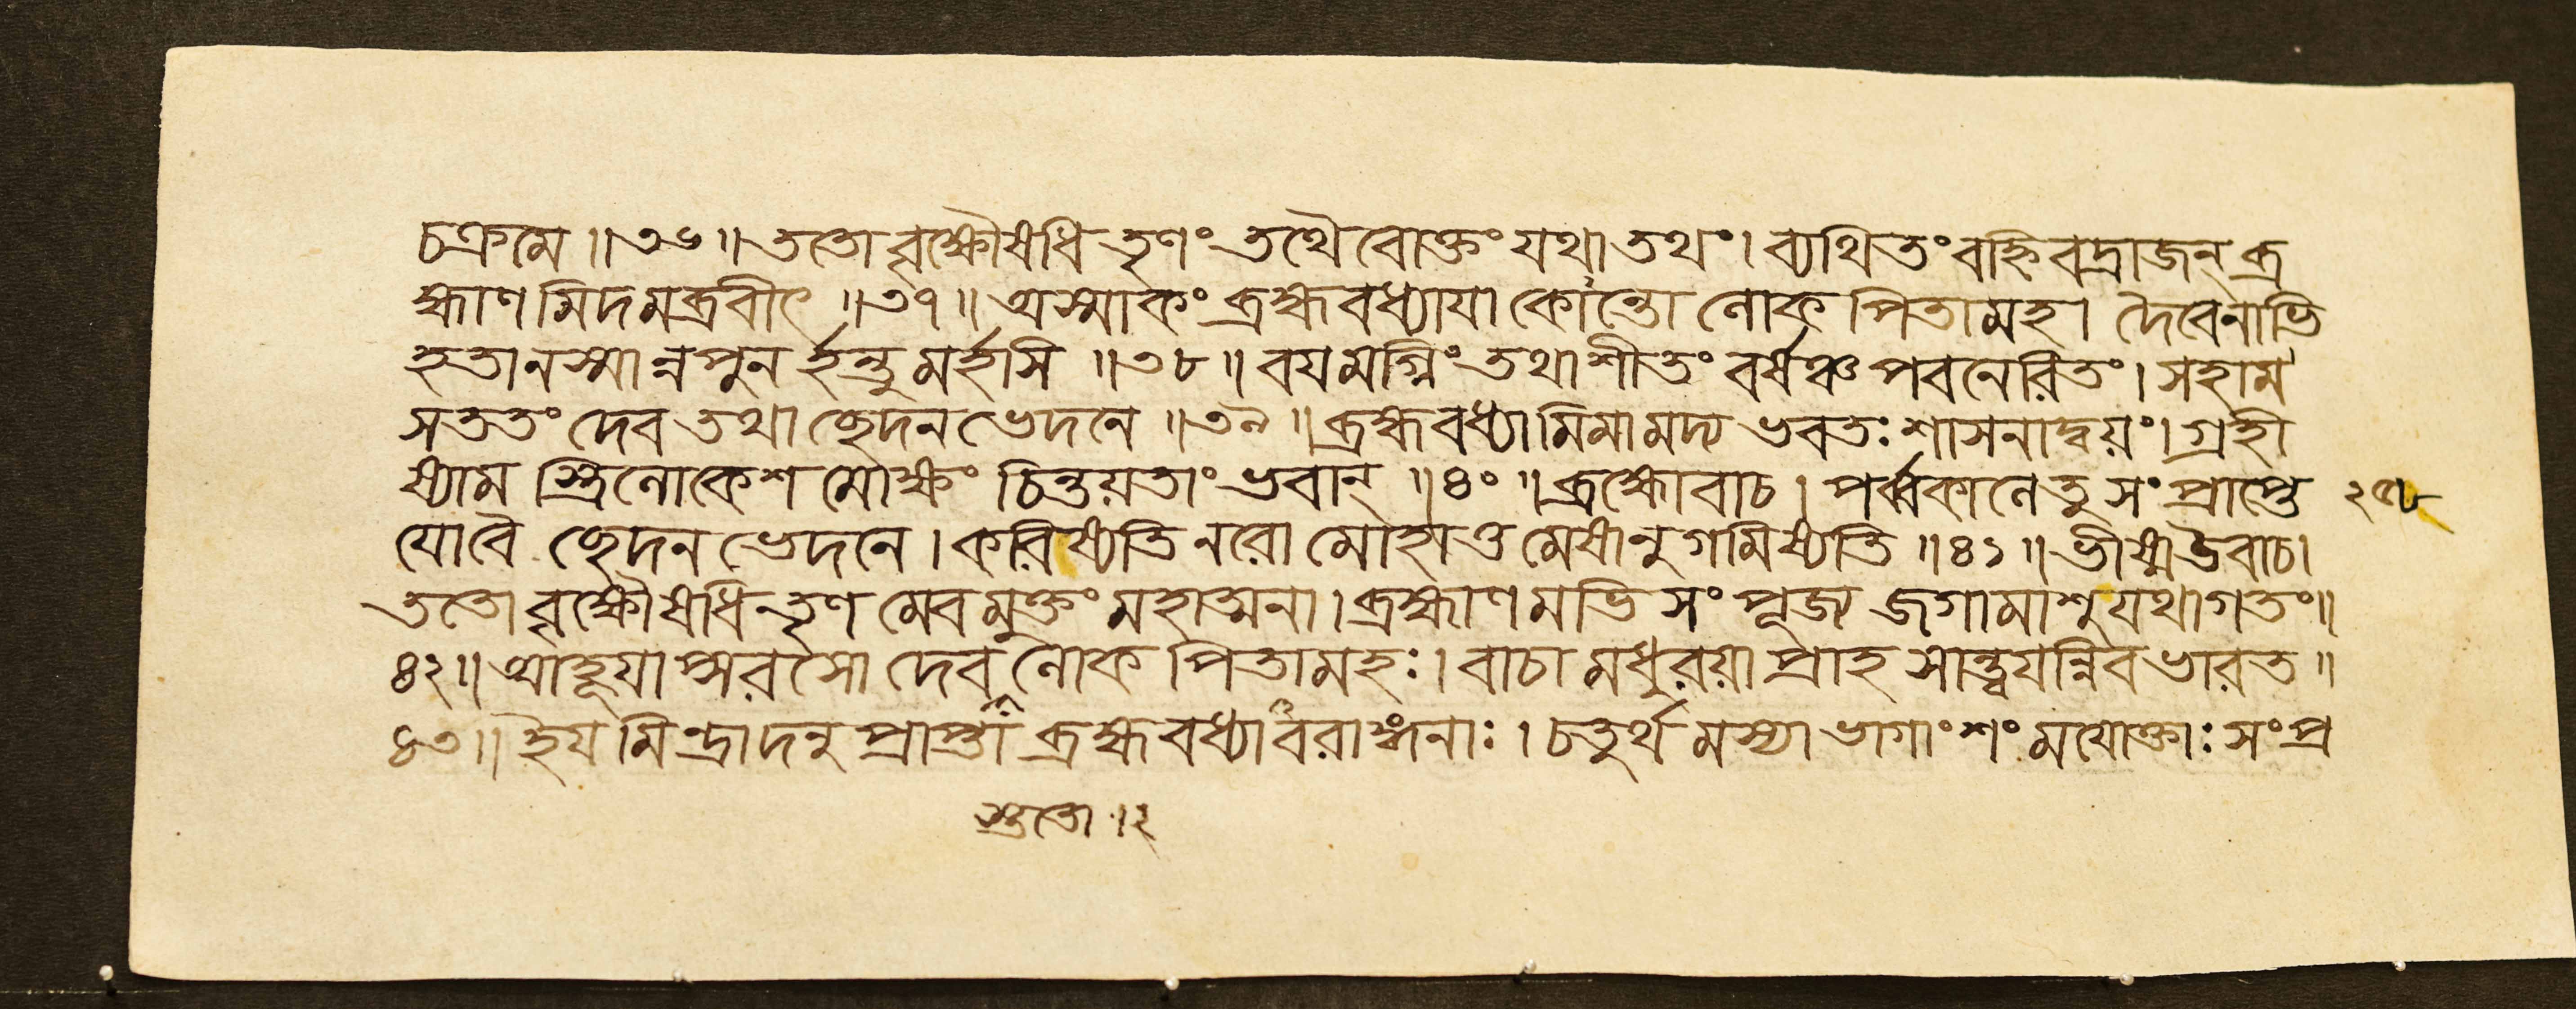 চক্রমে ॥৩৬॥ ততো বৃক্ষৌষধি তৃণং তথৈবোক্তং যথাতথং। ব্যথিতং বহ্নিবদ্রাজন্ ব্র
হ্মাণমিদমব্রবীৎ ॥৩৭॥ অস্মাকং ব্রহ্মবধ্যাযা কোন্তো লোকপিতামহ। দৈবেনাভি
হতানস্মান্ন পুনর্হন্তুমর্হসি ॥৩৮॥ বয়মগ্নিং তথা শীতং বর্ষঞ্চ পবনেরিতং। সহাম
সততং দেব তথা ছেদনভেদনে ॥৩৯॥ ব্রহ্মবধ্যামিমামদ্য ভবতঃ শাসনাদ্বয়ং। গ্রহী
ষ্যাম স্ত্রিলোকেশ মোক্ষং চিন্তয়তাং ভবান্ ॥৪০॥ ব্রহ্মোবাচ। পর্ব্বকালে তু সংপ্রাপ্তে ২৫৮
যো বৈ ছেদনভেদনে। করিষ্যতি নরো মোহাত্তমেষানুগমিষ্যতি ॥৪১॥ ভীষ্ম উবাচ।
ততো বৃক্ষৌষধিতৃণমেবমুক্তং মহাত্মনা। ব্রহ্মাণমভিসংপূজ্য জগামাশু যথাগতং॥
৪২॥ আহূযাপ্সরসো দেব লোকপিতামহঃ। বাচা মধুরয়া প্রাহ সান্ত্বযন্নিব ভারত॥
৪৩॥ ইয়মিন্দ্রাদনুপ্রাপ্তা ব্রহ্মবধ্যা বরাঙ্গনাঃ। চতুর্থমস্যা ভাগাংশং ময়োক্তাঃ সংপ্র